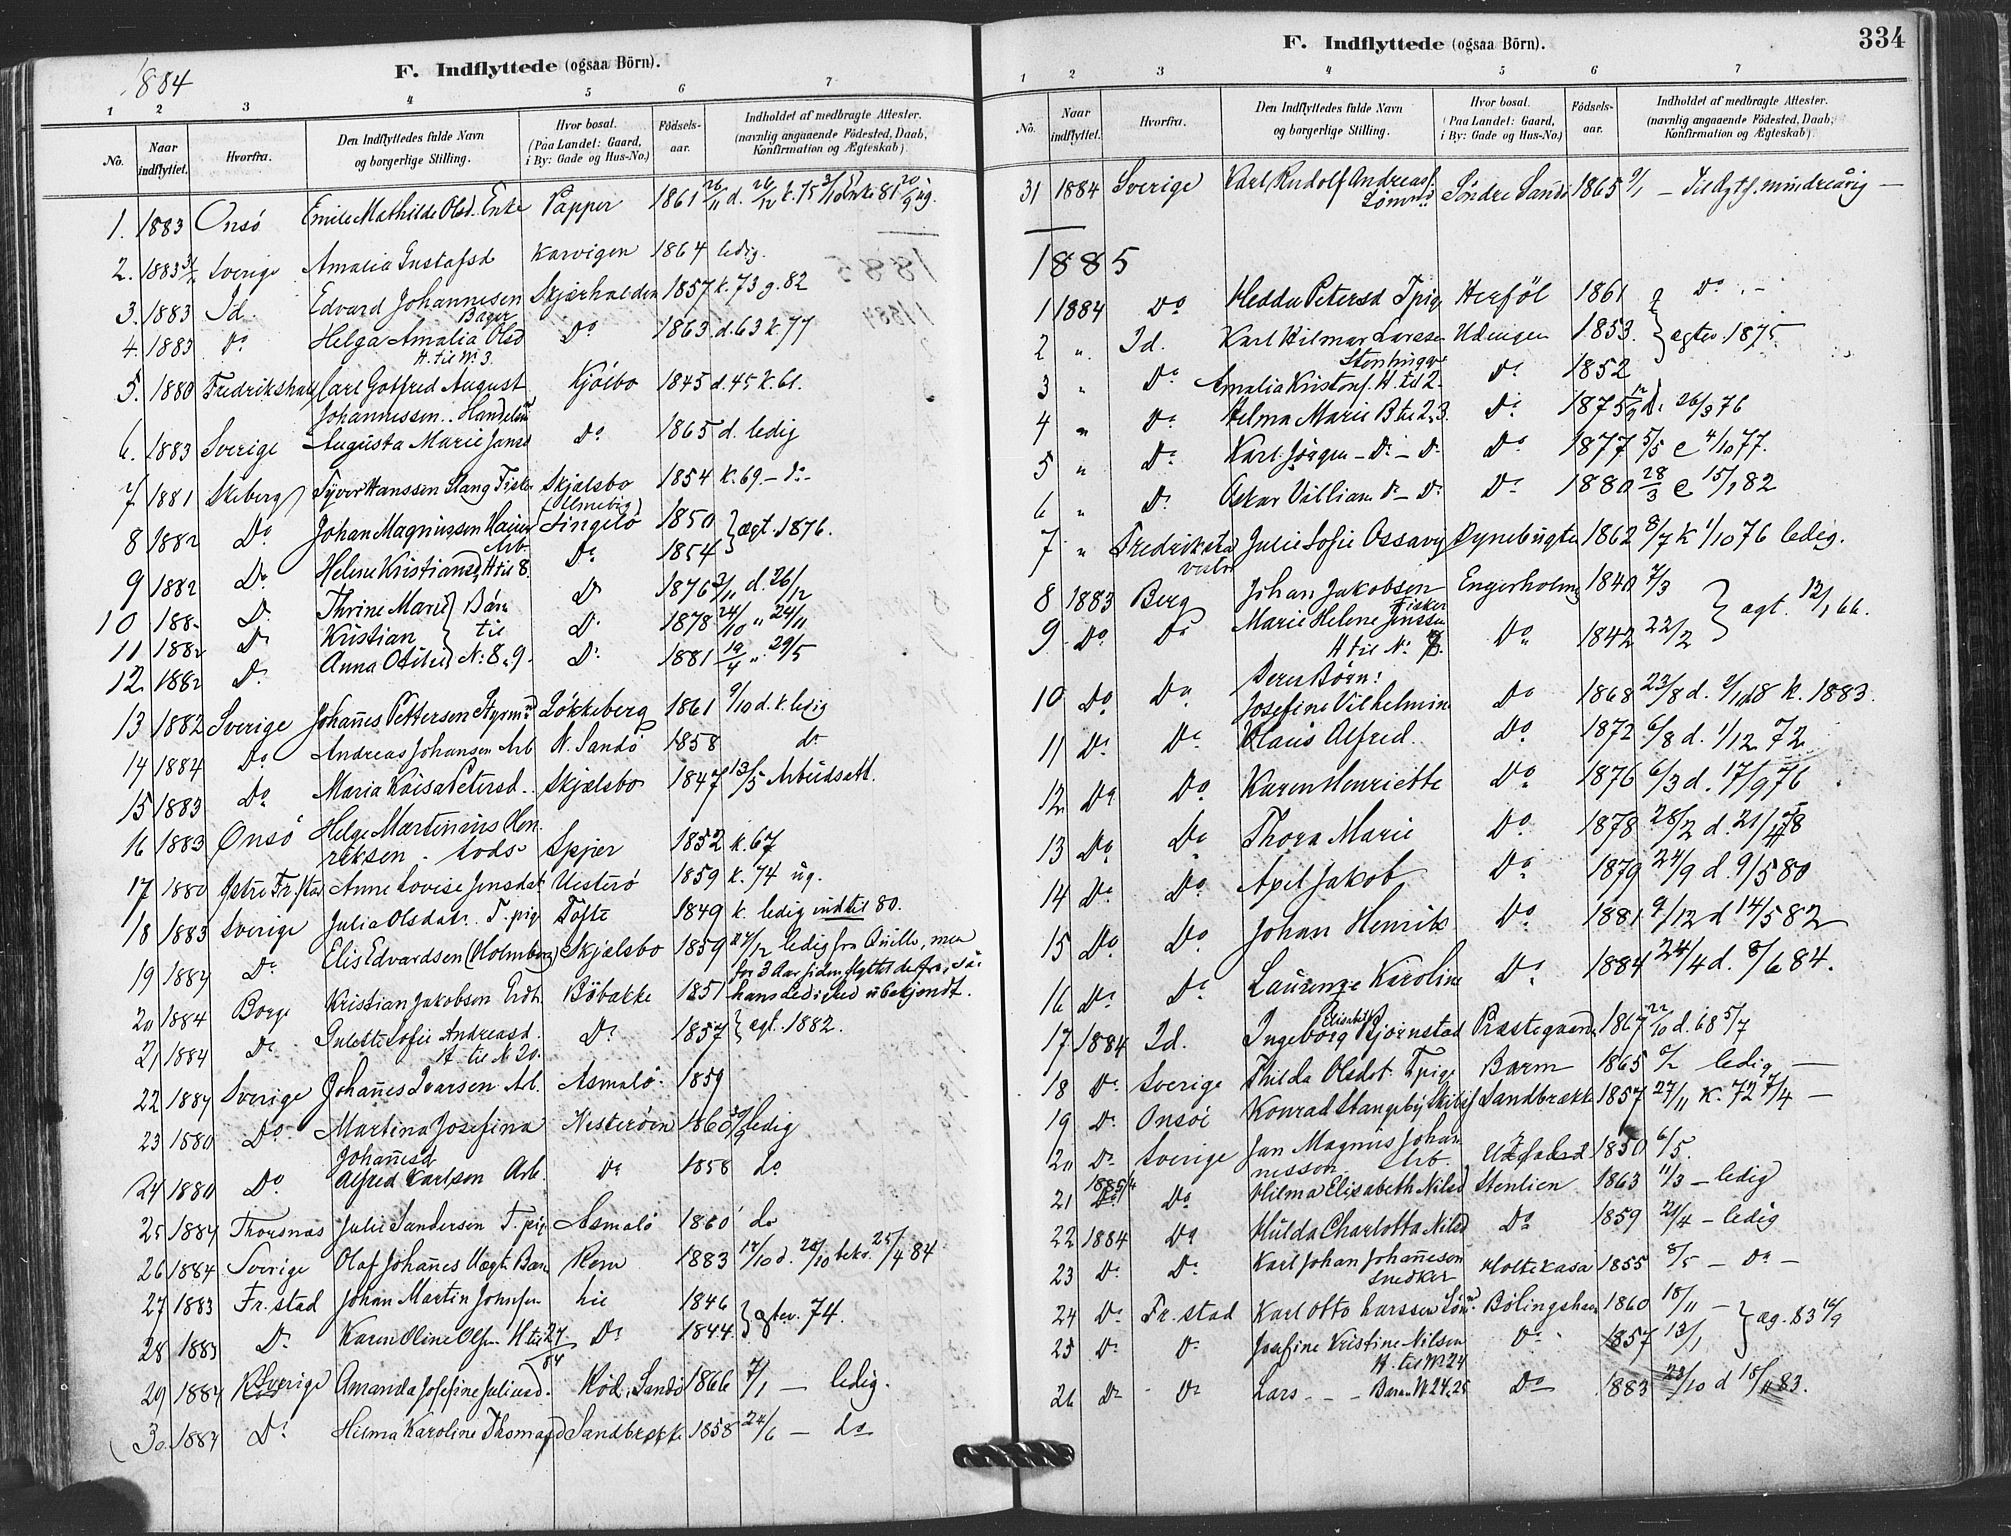 1884
F. Indflyttede (ogsaa Börn).
1 2 3 4 5 6 7
No. Naar indflyttet. Hvorfra. Den Indflyttedes fulde Navn og borgerlige Stilling. Hvor bosat. (Paa Landet: Gaard, i By: Gade og Hus-No.) Födsels-aar. Indholdet af medbragte Attester. (navnlig angaaende Födested, Daab, Konfirmation og Ægteskab)
1. 1883 Onsö Emilie Mathilde Olsd. Enke Papper 1861 26/11 d. 26/12 k. 75
2. 1883 Sverige Amalia Gustafsd Karvigen 1864 ledig.
3. 1883 Id. Edvard Johannesen Skjærhalden 1857 k. 73 g. 82
Bager
4. 1883 Do Helga Amalia Olsd Do 1863 d. 63 k. 77
H. til No 3.
5. 1880 Fredrikshald Carl Gotfred August Kjölbo 1845 d. 45 k. 61.
Johannessen. Handelsm
6. 1883 Sverige Augusta Marie Jansd Do 1865 d. ledig
7 1881 Skeberg Syver Hanssen Slang Fisker Skjælsbo 1854 k. 69. – do –
8 1882 Do Johan Magnussen Singelö 1850 } ægt. 1876.
Arb
9 1882 Do Helene Kristiansd. H til 8. Do 1854
10 188 D. Thrine Marie } Børn Do 1876 2/11 d. 26/12
11 1882 Do Kristian } til D. 1878 24/10 " 24/11
12 1882 D. Anna Otilie } No: 8 " 9. Do 1881 19/4 " 29/5
13 1882 Sverige Johañes Pettersen Styrmd Løkkeberg 1861 9/10 d. k. ledig
14 1884 Do Andreas Johansen Arb N. Sandö 1858 do
15 1883 Do Maria Kaisa Petersd. Skjælsbo 1847 13/5 Arbeidsatt.
16 1883 Onsö Helge Martinius Hen Spjær 1852 k. 67
reksen. Lods
17 1880 Østre Fr.stad Anne Lovise Jensdat Vesterö 1859 k. 74 ug.
18 1883 Sverige Julia Olsdatr. T. pig Tofte 1849 k. ledig indtil 80.
19 1884 Do Elis Edvardsen (Holmborg) Skjælsbo 1859 27/12 ledig fra Qville, men
for 3 Aar siden flyttet derfra, saa
20 1884 Borge Kristian Jakobsen Bøbakke 1851 hans Ledighed ubekjendt.
21 1884 Do Julette Sofie Andreasd. Do 1857 } ægt. 1882.
H. til N 20.
22 1884 Sverige Johañes Ivarsen Arb. Asmalö. 1859
23 1880 Do Martina Josefina Nesteröen 1860 30/9 ledig
Johañesd
24 1880 Do Alfred Karlson Arb. Do 1858 do
25 1884 Thorsnæs Julie Sandersen T. pig Asmalö 1860 do
26 1884 Sverige Olaf Johañes Uægt. Barn Rom 1883 17/10 d. 28/10 beko. 25/4 84
27 1883 Fr. stad Johan Martin Johnsen hie 1846 } gtev. 74.
28 1883 D. Karen Oline Olsen H til 27 Do 1844
84
29 1884 Sverige Amanda Josefine Juliusd. Kød. Sandö 1866 7/1 – ledig.
30 1884 Do Hilma Karoline Thomasd Sandbrekke 1858 24/6 – do
334
F. Indflyttede (ogsaa Börn).
1 2 3 4 5 6 7
No. Naar indflyttet. Hvorfra. Den Indflyttedes fulde Navn og borgerlige Stilling. Hvor bosat. (Paa Landet: Gaard, i By: Gade og Hus-No.) Födsels-aar. Indholdet af medbragte Attester. (navnlig angaaende Födested, Daab, Konfirmation og Ægteskab)
31 1884 Sverige Karl Rudolf Andreas Söndre Sandö 1865 9/1 – Til Ægtsk. mindreårig –
Sömnd
1885
1 1884 Do Hedda Petersd T.pig Herföl 1861 Do. –
2 " Id. Karl Hilmar Larssen Udengen 1853. } ægtev. 1875
Stenhugger
3 " Do Amalia Kristensd. H. til 2. Do 1852
4 " Do Helma Marie B til 2, 3. Do 1875 d. 26/3 76
5 " Do Karl Jörgen – Do – Do Do 1877 5/5 d 4/10 77.
6 " D. Oskar Villiam Do – Do Do 1880 28/3 d 15/1 82
7 " Fredrikstad Julie Sofie Ossavig Dynebugten 1862 8/7 k 1/10 76 ledig.
vestre
8 1883 Berg Johan Jakobsen Engerholm 1840 7/3 } ægt. 12/1 66.
Fisker
9 Do Do Marie Helene Jenssen Do 1842 22/2
H til No 8.
Deres Børn:
10 Do Do Josefine Vilhelmine Do 1868 23/8 d. k. 1883.
11 Do Do Klaus Alfred Do 1872 6/8 d. 1/12 72
12 Do Do Karen Henriette Do 1876 6/3 d. 17/9 76
13 Do Do Thora Marie Do 1878 28/2 d. 21/4 78
14 Do Do Axel Jakob Do 1879 24/9 d. 9/5 80
15 Do Do Johan Henrik Do 1881 9/12 d 14/5 82
16 Do Do Laurenze Karoline Do 1884 24/4 d. 8/6 84.
17 1884 Id. Ingeborg Elisabeth Bjørnstad Præstegaard 1867 22/10 d. 68 5/7
18 Do Sverige Thilda Olsdat. T.pige Barm 1865 ledig –
19 Do Onsöe Konrad Stangebÿ Skibsf Sandbrække 1857 27/11 k. 72 7/4 –
20 Do Sverige Jan Magnus Johan 1850 6/5.
nesson Arb.
21 1885 Do Hilma Elisabeth Nilsd Stenlien 1863 11/3 – ledig
22 1884 Do Hulda Charlotta Nilsd Do 1859 21/4 – ledig
23 Do Do Karl Johan Johañeson Holtekasa 1855 8/5 – Do –
Snedker
24 Do Fr. stad Karl Otto Larssen Bölingshavn 1860 18/11 – } æg. 83 16/9
25 Do Do Josefine Kristine Nilsen Do 1857 13/1
H. til No 24
26 Do Do Lars – – Barn No 24, 25 Do 1883 23/10 d 18/11 83.